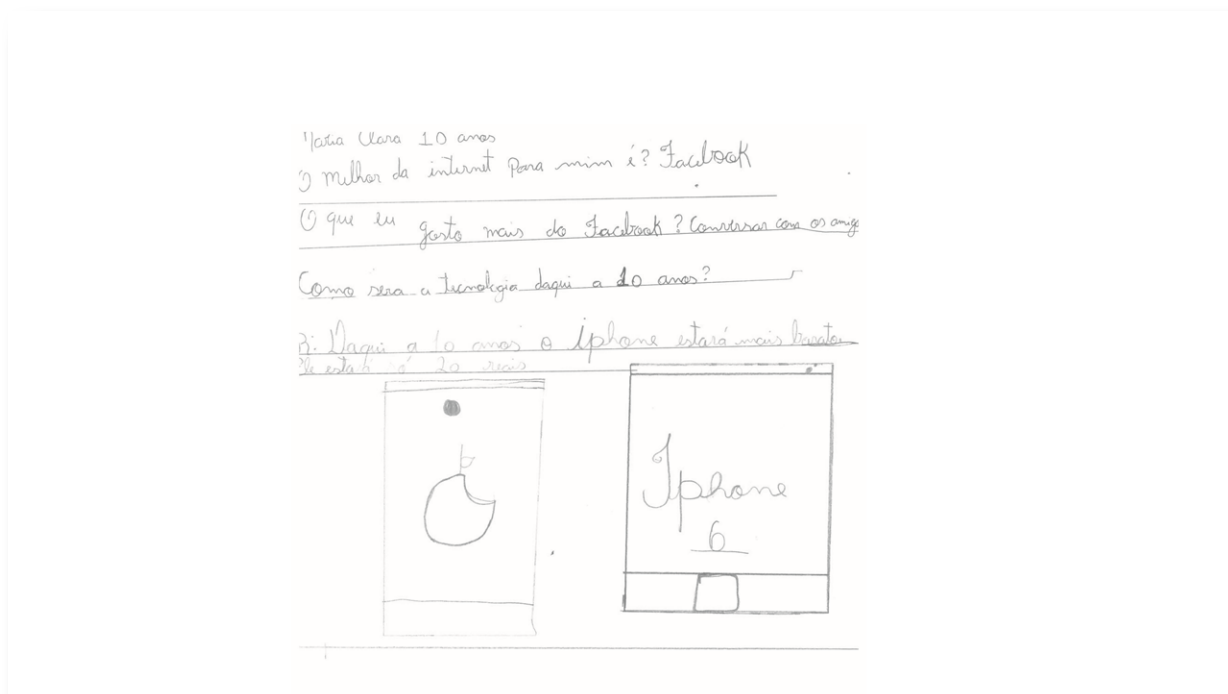 Maria Clara 10 anos
O melhor da internet para mim é? Facebook
O que eu gosto mais do Facebook? Conversar com os amig
Como sera a tecnologia daqui a 10 anos?
R: Daqui a 10 anos o iphone estará mais barato
ele estará só 20 reais
Iphone
6